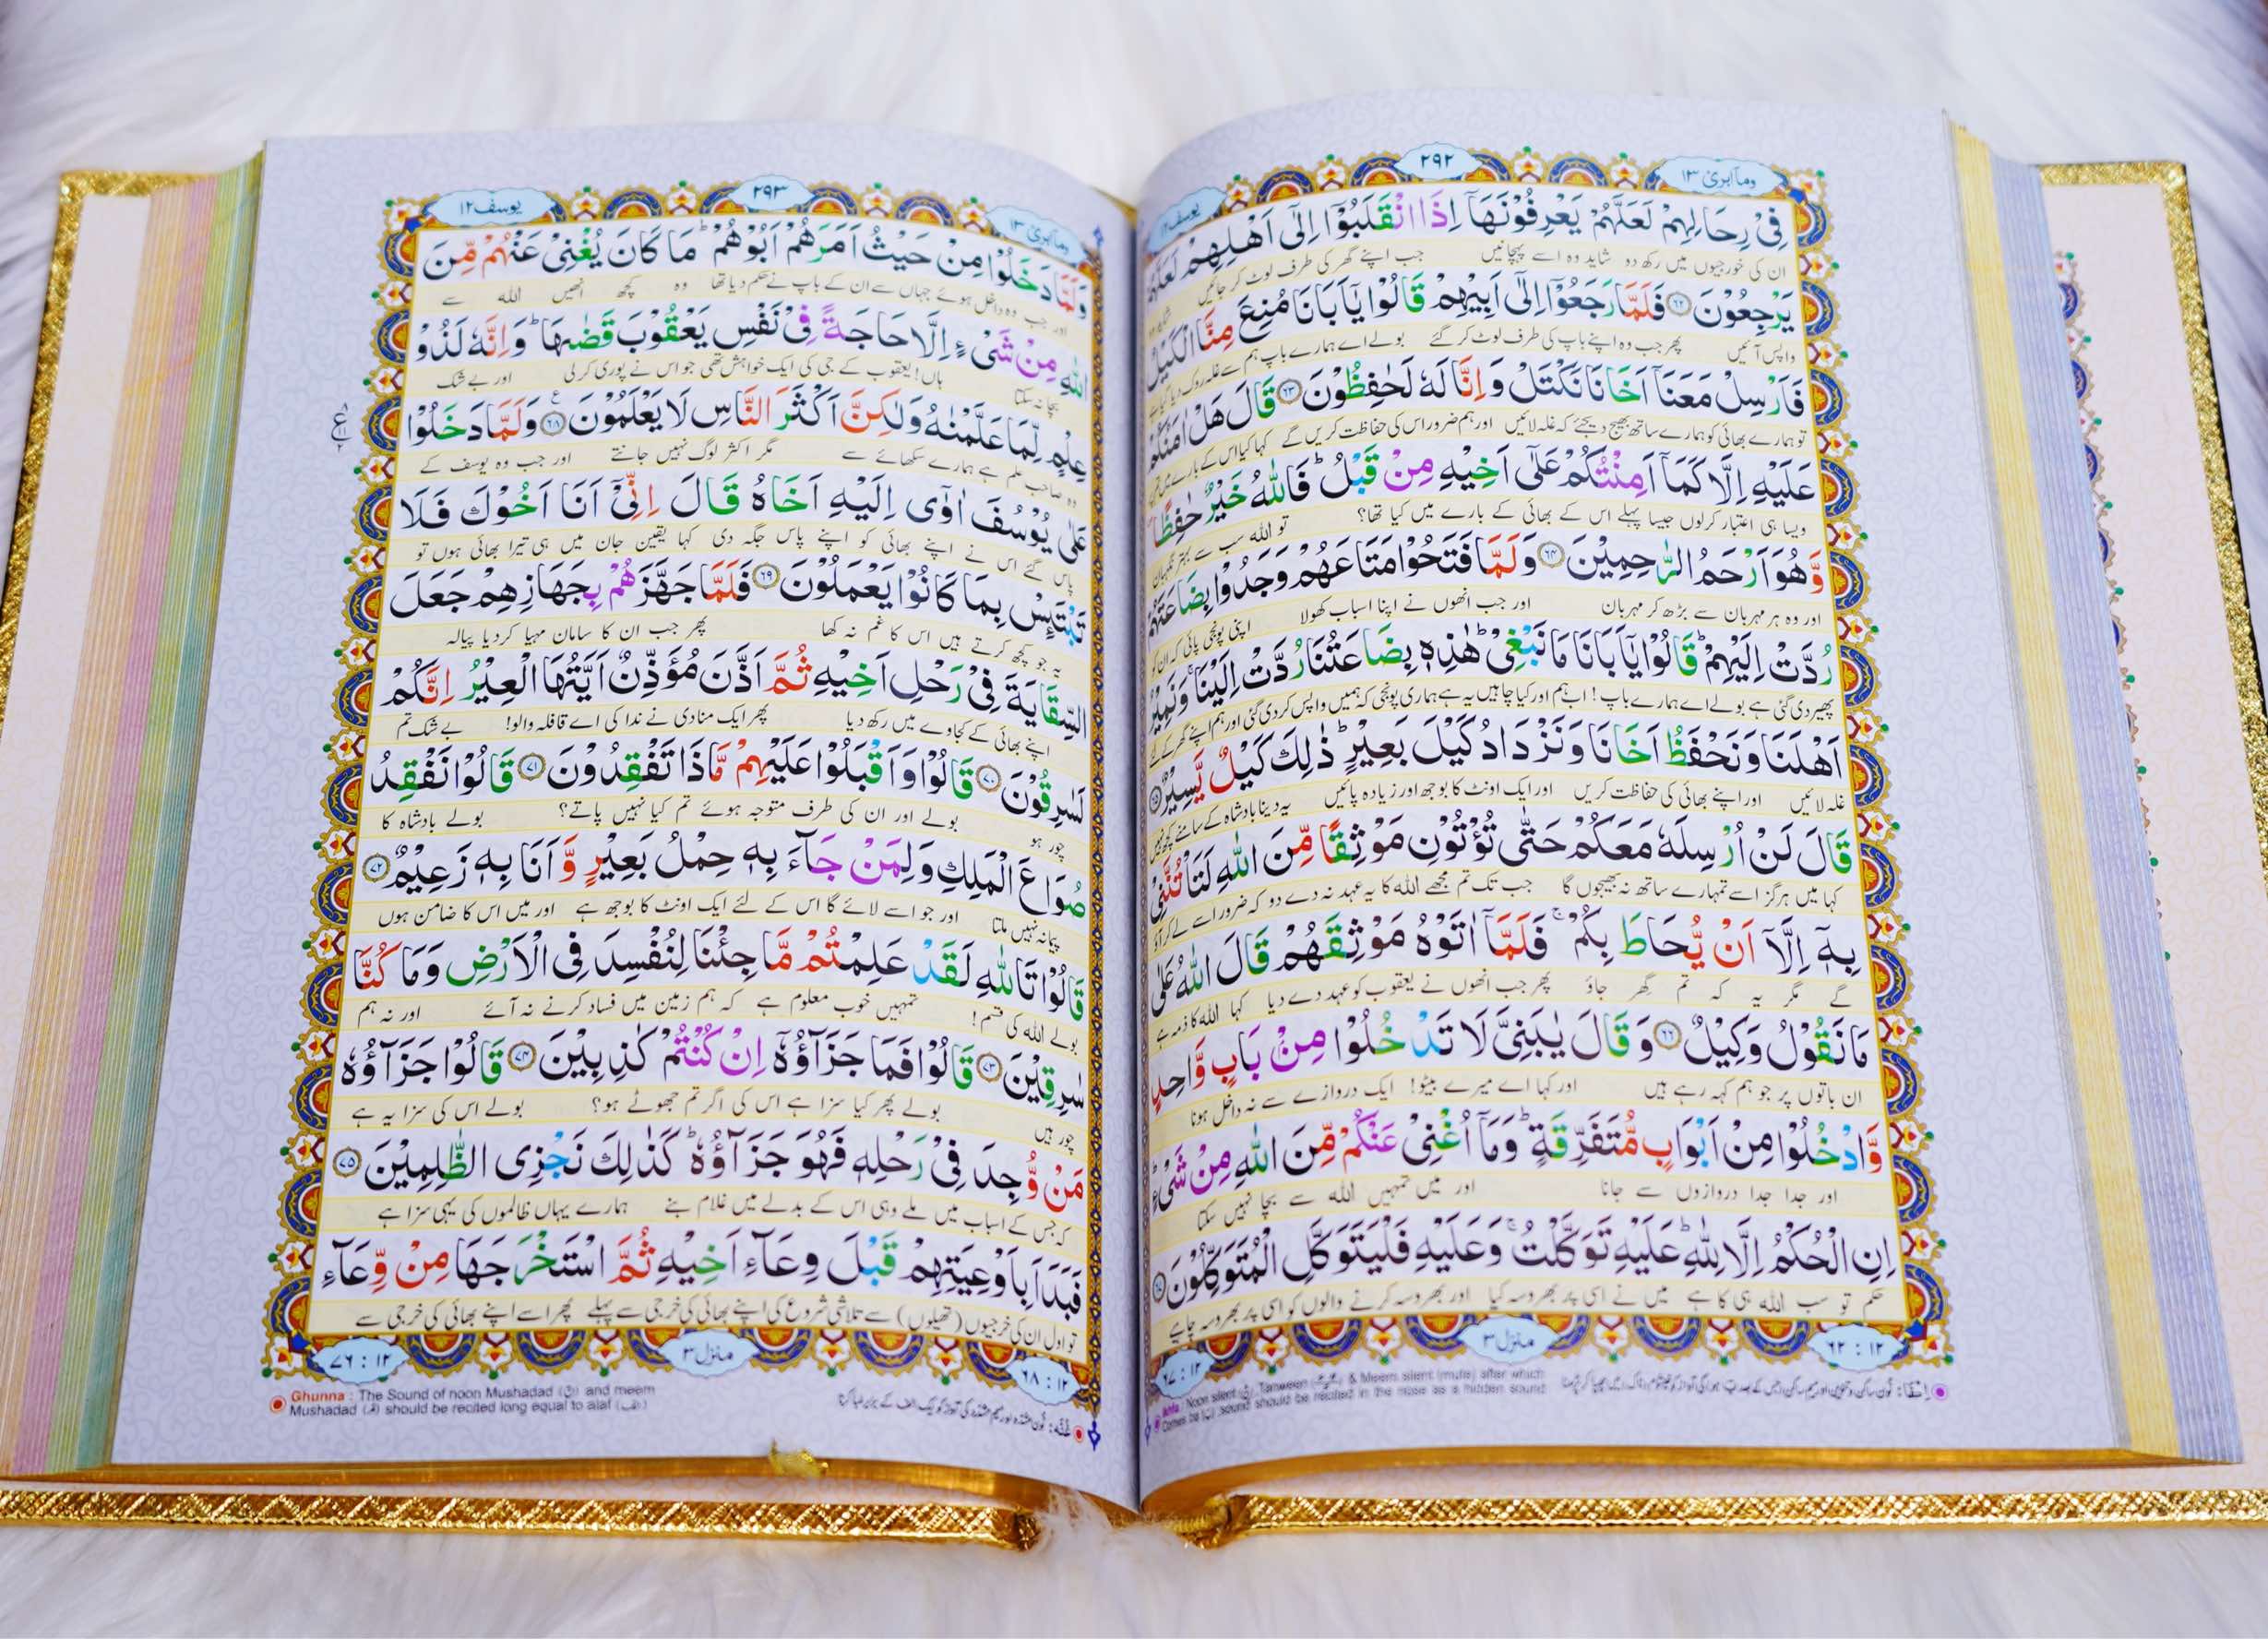 وما ابرئ ۱۳
۲۹۲
یوسف ۱۲
فِیْ رِحَالِهِمْ لَعَلَّهُمْ یَعْرِفُوْنَهَاۤ اِذَا انْقَلَبُوْۤا اِلٰۤی اَهْلِهِمْ لَعَلَّهُمْ
ان کی خورجیوں میں رکھ دو شاید وہ اسے پہچانیں جب اپنے گھر کی طرف لوٹ کر جائیں
یَرْجِعُوْنَ ۶۲ فَلَمَّا رَجَعُوْۤا اِلٰۤی اَبِیْهِمْ قَالُوْا یٰۤاَبَانَا مُنِعَ مِنَّا الْكَیْلُ
واپس آئیں پھر جب وہ اپنے باپ کی طرف لوٹ کر گئے بولے اے ہمارے باپ ہم سے غلہ روک دیا گیا ہے
فَاَرْسِلْ مَعَنَاۤ اَخَانَا نَكْتَلْ وَ اِنَّا لَهٗ لَحٰفِظُوْنَ ۶۳ قَالَ هَلْ اٰمَنُكُمْ
تو ہمارے بھائی کو ہمارے ساتھ بھیج دیجئے کہ غلہ لائیں اور ہم ضرور اس کی حفاظت کریں گے کہا کیا اس کے بارے میں
عَلَیْهِ اِلَّا كَمَاۤ اَمِنْتُكُمْ عَلٰۤی اَخِیْهِ مِنْ قَبْلُ ؕ فَاللّٰهُ خَیْرٌ حٰفِظًا
ویسا ہی اعتبار کرلوں جیسا پہلے اس کے بھائی کے بارے میں کیا تھا؟ تو اللہ سب سے بہتر نگہبان
وَّ هُوَ اَرْحَمُ الرّٰحِمِیْنَ ۶۴ وَ لَمَّا فَتَحُوْا مَتَاعَهُمْ وَجَدُوْا بِضَاعَتَهُمْ
اور وہ ہر مہربان سے بڑھ کر مہربان اور جب انھوں نے اپنا اسباب کھولا اپنی پونجی پائی کہ ان کو
رُدَّتْ اِلَیْهِمْ ؕ قَالُوْا یٰۤاَبَانَا مَا نَبْغِیْ ؕ هٰذِهٖ بِضَاعَتُنَا رُدَّتْ اِلَیْنَا ۚ وَ نَمِیْرُ
پھیر دی گئی ہے بولے اے ہمارے باپ! اب ہم اور کیا چاہیں یہ ہے ہماری پونجی کہ ہمیں واپس کردی گئی اور ہم اپنے گھر کے لئے
اَهْلَنَا وَ نَحْفَظُ اَخَانَا وَ نَزْدَادُ كَیْلَ بَعِیْرٍ ؕ ذٰلِكَ كَیْلٌ یَّسِیْرٌ ۶۵
غلہ لائیں اور اپنے بھائی کی حفاظت کریں اور ایک اونٹ کا بوجھ اور زیادہ پائیں یہ دینا بادشاہ کے سامنے کچھ نہیں
قَالَ لَنْ اُرْسِلَهٗ مَعَكُمْ حَتّٰی تُؤْتُوْنِ مَوْثِقًا مِّنَ اللّٰهِ لَتَاْتُنَّنِیْ
کہا میں ہرگز اسے تمہارے ساتھ نہ بھیجوں گا جب تک تم مجھے اللہ کا یہ عہد نہ دے دو کہ ضرور اسے لے کر آؤ
بِهٖۤ اِلَّاۤ اَنْ یُّحَاطَ بِكُمْ ۚ فَلَمَّاۤ اٰتَوْهُ مَوْثِقَهُمْ قَالَ اللّٰهُ عَلٰی
گے مگر یہ کہ تم گھر جاؤ پھر جب انھوں نے یعقوب کو عہد دے دیا کہا اللہ کا ذمہ ہے
مَا نَقُوْلُ وَكِیْلٌ ۶۶ وَ قَالَ یٰبَنِیَّ لَا تَدْخُلُوْا مِنْۢ بَابٍ وَّاحِدٍ
ان باتوں پر جو ہم کہہ رہے ہیں اور کہا اے میرے بیٹو! ایک دروازے سے نہ داخل ہونا
وَّ ادْخُلُوْا مِنْ اَبْوَابٍ مُّتَفَرِّقَةٍ ؕ وَ مَاۤ اُغْنِیْ عَنْكُمْ مِّنَ اللّٰهِ مِنْ شَیْءٍ ؕ
اور جدا جدا دروازوں سے جانا اور میں تمہیں اللہ سے بچا نہیں سکتا
اِنِ الْحُكْمُ اِلَّا لِلّٰهِ ؕ عَلَیْهِ تَوَكَّلْتُ ۚ وَ عَلَیْهِ فَلْیَتَوَكَّلِ الْمُتَوَكِّلُوْنَ ۶۷
حکم تو سب اللہ ہی کا ہے میں نے اسی پر بھروسہ کیا اور بھروسہ کرنے والوں کو اسی پر بھروسہ چاہیے
۶۲ : ۱۲
منزل ۳
۶۷ : ۱۲
Noon silent Tanween & Meem silent (mute) after which
Comes be sound should be recited in the nose as a hidden sound
وما ابرئ ۱۳
۲۹۳
یوسف ۱۲
وَ لَمَّا دَخَلُوْا مِنْ حَیْثُ اَمَرَهُمْ اَبُوْهُمْ ؕ مَا كَانَ یُغْنِیْ عَنْهُمْ مِّنَ
اور جب وہ داخل ہوئے جہاں سے ان کے باپ نے حکم دیا تھا وہ کچھ انھیں اللہ سے
اللّٰهِ مِنْ شَیْءٍ اِلَّا حَاجَةً فِیْ نَفْسِ یَعْقُوْبَ قَضٰىهَا ؕ وَ اِنَّهٗ لَذُوْ
بچا نہ سکتا ہاں! یعقوب کے جی کی ایک خواہش تھی جو اس نے پوری کرلی اور بے شک
عِلْمٍ لِّمَا عَلَّمْنٰهُ وَ لٰكِنَّ اَكْثَرَ النَّاسِ لَا یَعْلَمُوْنَ ۶۸ وَ لَمَّا دَخَلُوْا
وہ صاحب علم ہے ہمارے سکھائے سے مگر اکثر لوگ نہیں جانتے اور جب وہ یوسف کے
عَلٰی یُوْسُفَ اٰوٰۤی اِلَیْهِ اَخَاهُ قَالَ اِنِّیْۤ اَنَا اَخُوْكَ فَلَا
پاس گئے اس نے اپنے بھائی کو اپنے پاس جگہ دی کہا یقین جان میں ہی تیرا بھائی ہوں تو
تَبْتَىِٕسْ بِمَا كَانُوْا یَعْمَلُوْنَ ۶۹ فَلَمَّا جَهَّزَهُمْ بِجَهَازِهِمْ جَعَلَ
یہ جو کچھ کرتے ہیں اس کا غم نہ کھا پھر جب ان کا سامان مہیا کردیا پیالہ
السِّقَایَةَ فِیْ رَحْلِ اَخِیْهِ ثُمَّ اَذَّنَ مُؤَذِّنٌ اَیَّتُهَا الْعِیْرُ اِنَّكُمْ
اپنے بھائی کے کجاوے میں رکھ دیا پھر ایک منادی نے ندا کی اے قافلہ والو! بے شک تم
لَسٰرِقُوْنَ ۷۰ قَالُوْا وَ اَقْبَلُوْا عَلَیْهِمْ مَّا ذَا تَفْقِدُوْنَ ۷۱ قَالُوْا نَفْقِدُ
چور ہو بولے اور ان کی طرف متوجہ ہوئے تم کیا نہیں پاتے؟ بولے بادشاہ کا
صُوَاعَ الْمَلِكِ وَ لِمَنْ جَآءَ بِهٖ حِمْلُ بَعِیْرٍ وَّ اَنَا بِهٖ زَعِیْمٌ ۷۲
پیمانہ نہیں ملتا اور جو اسے لائے گا اس کے لئے ایک اونٹ کا بوجھ ہے اور میں اس کا ضامن ہوں
قَالُوْا تَاللّٰهِ لَقَدْ عَلِمْتُمْ مَّا جِئْنَا لِنُفْسِدَ فِی الْاَرْضِ وَ مَا كُنَّا
بولے اللہ کی قسم! تمہیں خوب معلوم ہے کہ ہم زمین میں فساد کرنے نہ آئے اور نہ ہم
سٰرِقِیْنَ ۷۳ قَالُوْا فَمَا جَزَآؤُهٗۤ اِنْ كُنْتُمْ كٰذِبِیْنَ ۷۴ قَالُوْا جَزَآؤُهٗ
چور ہیں بولے پھر کیا سزا ہے اس کی اگر تم جھوٹے ہو؟ بولے اس کی سزا یہ ہے
مَنْ وُّجِدَ فِیْ رَحْلِهٖ فَهُوَ جَزَآؤُهٗ ؕ كَذٰلِكَ نَجْزِی الظّٰلِمِیْنَ ۷۵
کہ جس کے اسباب میں ملے وہی اس کے بدلے میں غلام بنے ہمارے یہاں ظالموں کی یہی سزا ہے
فَبَدَاَ بِاَوْعِیَتِهِمْ قَبْلَ وِعَآءِ اَخِیْهِ ثُمَّ اسْتَخْرَجَهَا مِنْ وِّعَآءِ
تو اول ان کی خرجیوں (تھیلوں) سے تلاشی شروع کی اپنے بھائی کی خرجی سے پہلے پھر اسے اپنے بھائی کی خرجی سے
۶۸ : ۱۲
منزل ۳
۷۶ : ۱۲
Ghunna : The Sound of noon Mushadad (نّ) and meem
Mushadad (مّ) should be recited long equal to alaf (الف)
غُنّہ: نون مشدّد اور میم مشدّد کی آواز کو ایک الف کے برابر لمبا کرنا